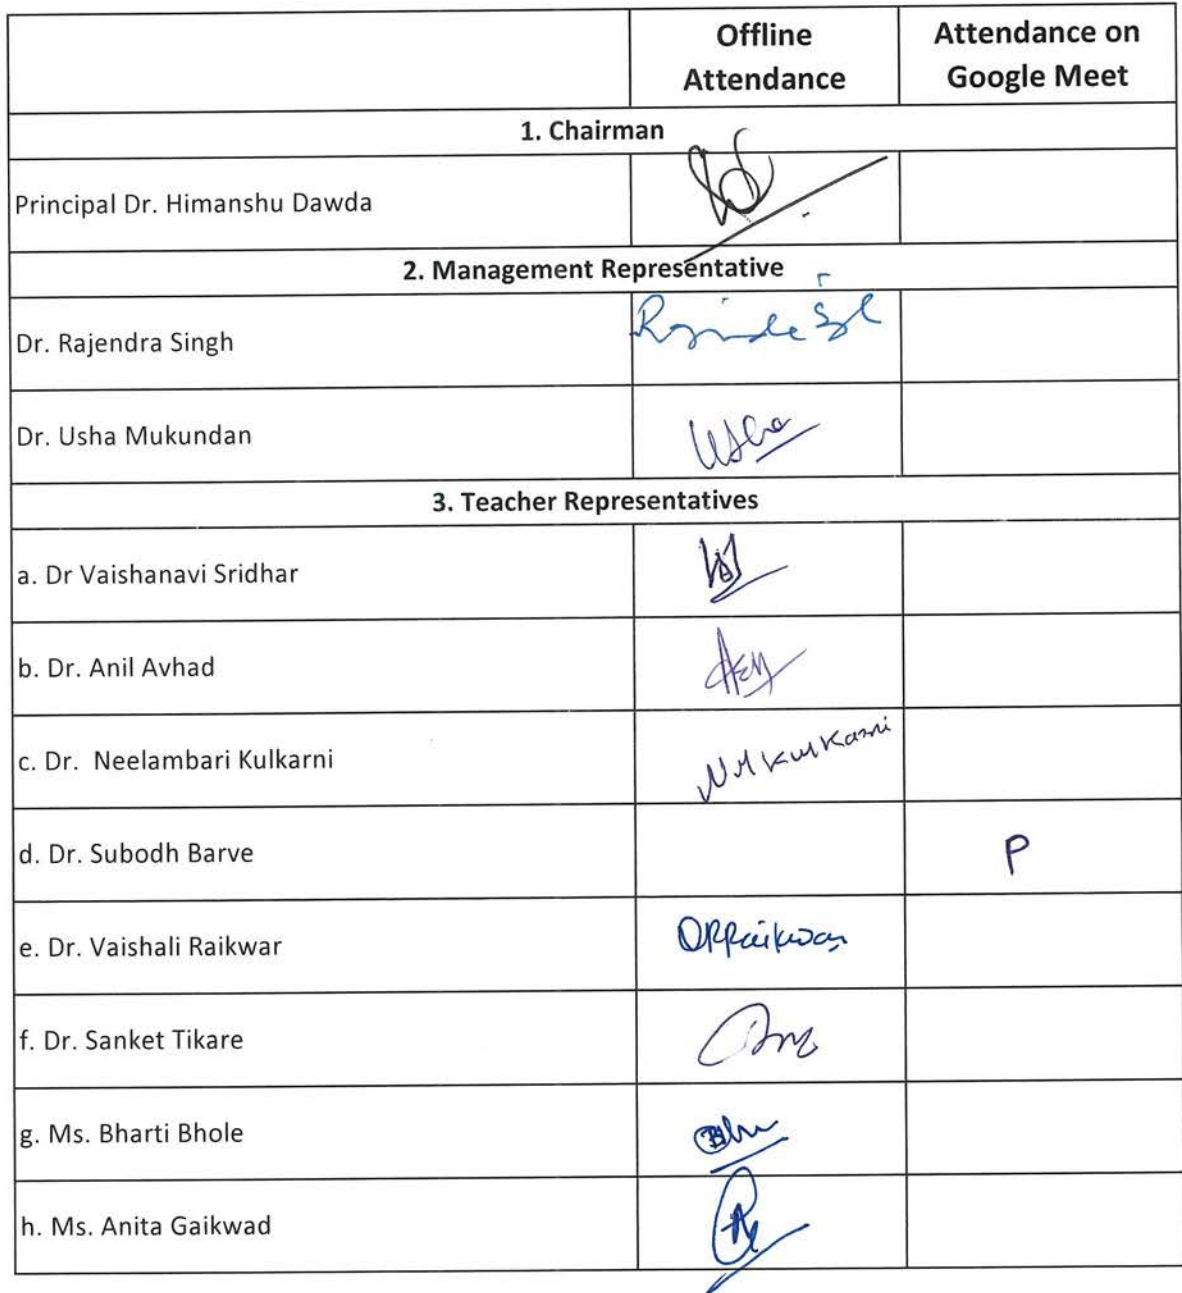 Offline Attendance
Attendance on Google Meet
1. Chairman
Principal Dr. Himanshu Dawda
2. Management Representative
Dr. Rajendra Singh
Dr. Usha Mukundan Usha
3. Teacher Representatives
a. Dr Vaishanavi Sridhar
b. Dr. Anil Avhad
c. Dr. Neelambari Kulkarni NMKulkarni
d. Dr. Subodh Barve P
e. Dr. Vaishali Raikwar
f. Dr. Sanket Tikare
g. Ms. Bharti Bhole
h. Ms. Anita Gaikwad